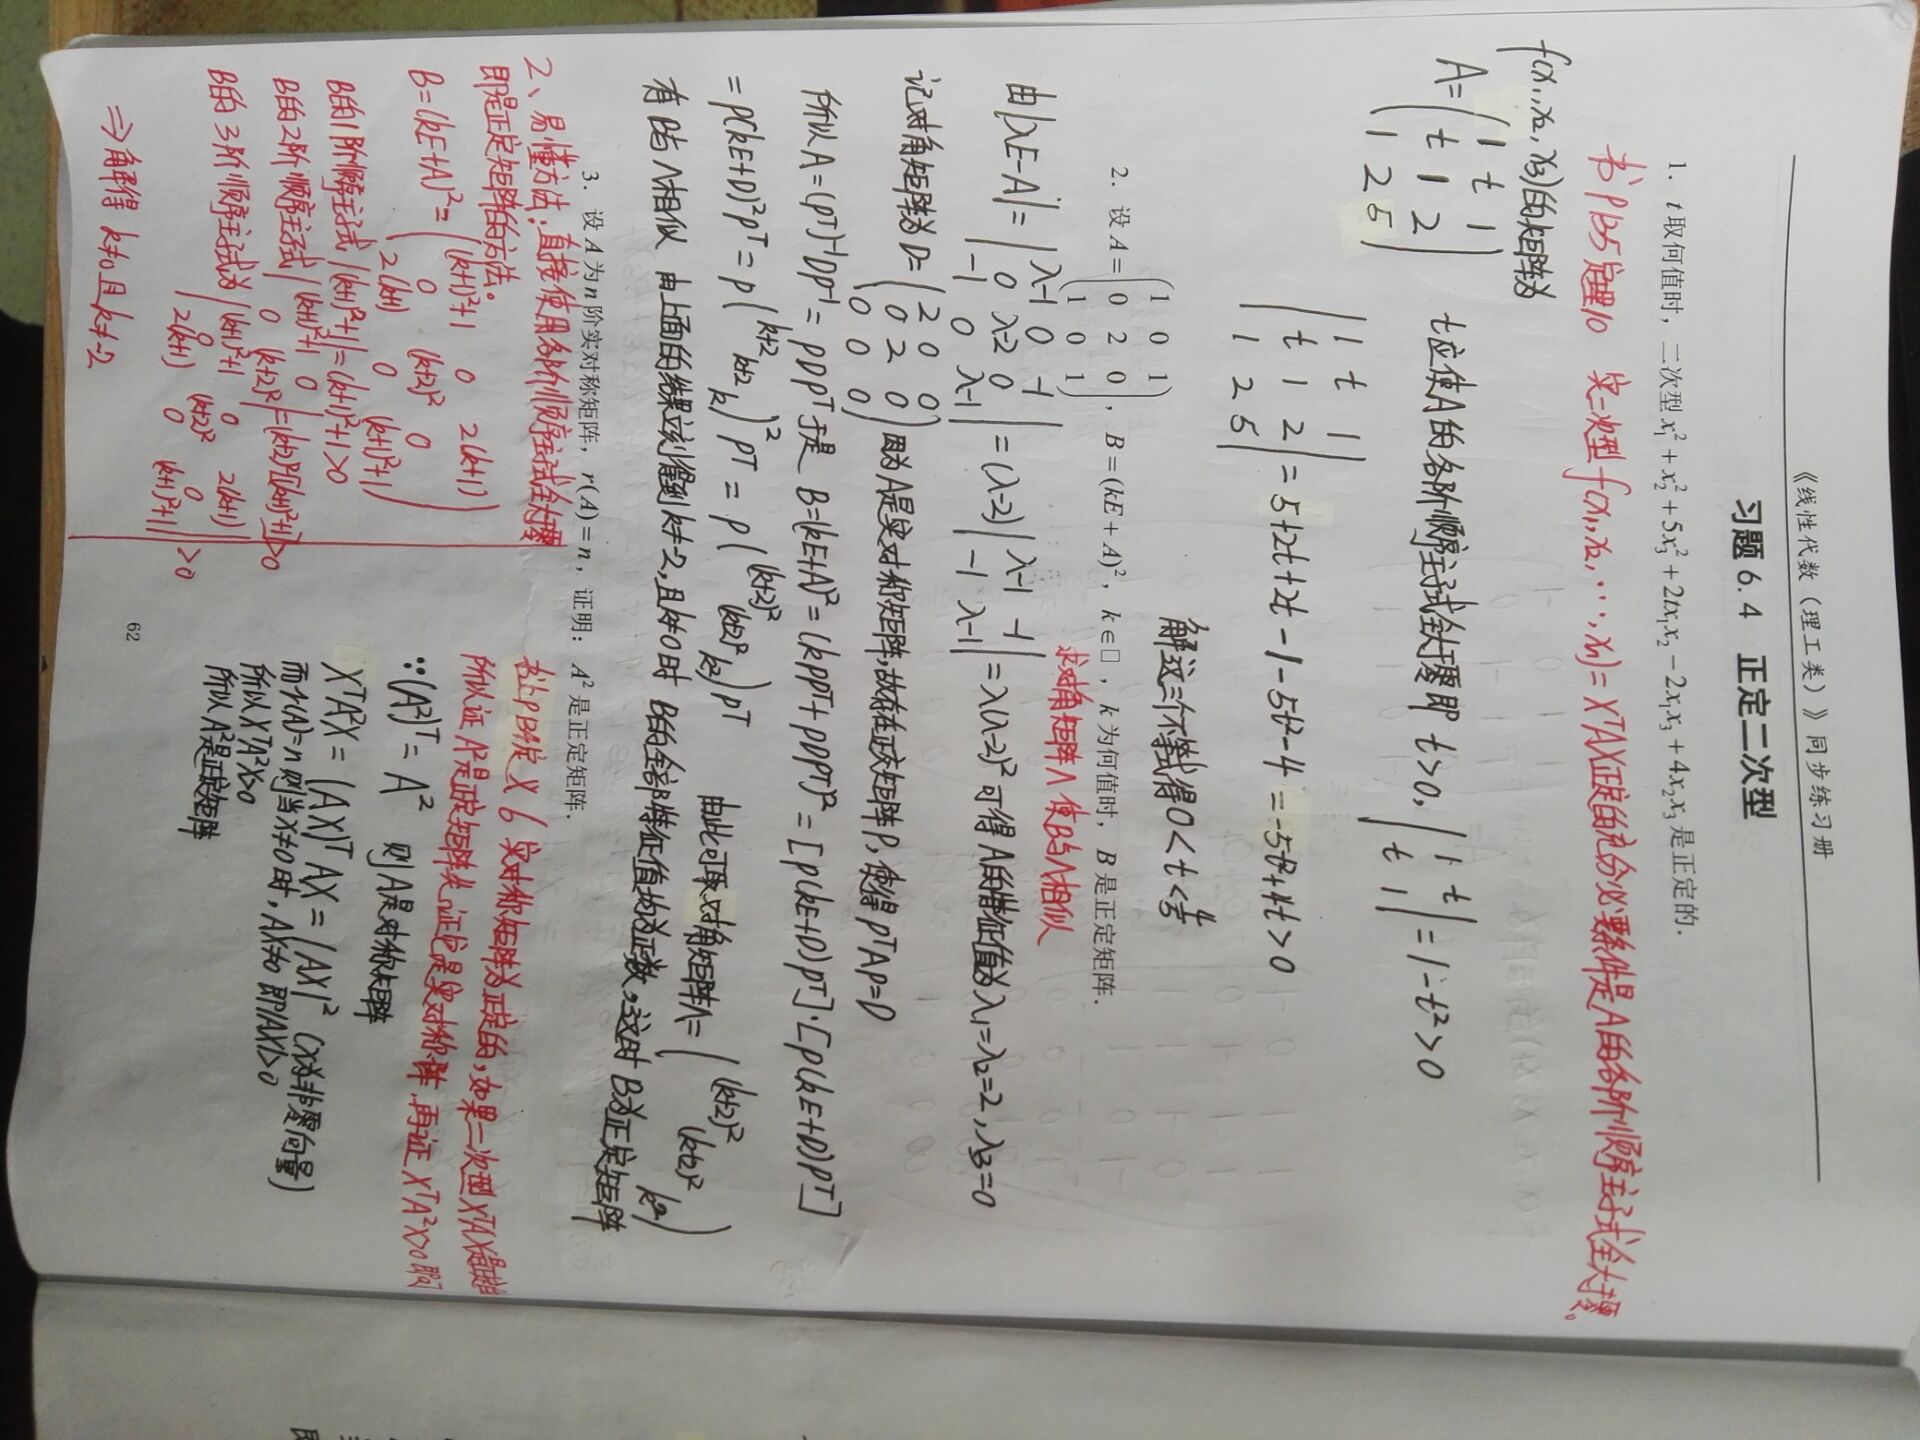 《线性代数（理工类）》同步练习册
习题 6.4 正定二次型
1. t 取何值时，二次型 x₁² + x₂² + 5x₃² + 2tx₁x₂ − 2x₁x₃ + 4x₂x₃ 是正定的.
书P135定理10 实二次型 f(x₁, x₂, ⋯, xₙ) = XᵀAX正定的充分必要条件是A的各阶顺序主子式全大于零。
f(x₁, x₂, x₃)的矩阵为
A = (1 t 1
t 1 2
1 2 5)
t应使A的各阶顺序主子式全大于零即 t>0, |1 t
t 1| = 1 - t² > 0
|1 t 1
t 1 2
1 2 5| = 5+2t+2t-1-5t²-4 = -5t²+4t>0
解这三个不等式得 0<t<4/5
2. 设 A = (1 0 1
0 2 0
1 0 1), B = (kE + A)², k∈□, k 为何值时，B 是正定矩阵.
求对角矩阵Λ使B与Λ相似
由|λE-A| = |λ-1 0 -1
0 λ-2 0
-1 0 λ-1| = (λ-2)|λ-1 -1
-1 λ-1| = λ(λ-2)² 可得A的特征值为 λ₁=λ₂=2, λ₃=0
记对角矩阵为 D = (2 0 0
0 2 0
0 0 0) 因为A是实对称矩阵,故存在正交矩阵P, 使得 PᵀAP=D
所以 A=(Pᵀ)⁻¹DP⁻¹ = PDPᵀ 于是 B=(kE+A)² = (kPPᵀ+PDPᵀ)² = [P(kE+D)Pᵀ]·[P(kE+D)Pᵀ]
= P(kE+D)²Pᵀ = P(k+2
k+2
k)² Pᵀ = P((k+2)²
(k+2)²
k²)Pᵀ 由此可取对角矩阵Λ = ((k+2)²
(k+2)²
k²)
有B与Λ相似 由上面的结果立刻得到k≠-2,且k≠0时 B的全部特征值均为正数,这时B为正定矩阵
3. 设 A 为 n 阶实对称矩阵，r(A) = n，证明：A² 是正定矩阵.
2、易懂方法,直接使用各阶顺序主子式全大于零
即是正定矩阵的方法。
B=(kE+A)² = ((k+1)²+1 0 2(k+1)
0 (k+2)² 0
2(k+1) 0 (k+1)²+1)
B的1阶顺序主子式 |(k+1)²+1| = (k+1)²+1>0
B的2阶顺序主子式 |(k+1)²+1 0
0 (k+2)²| = (k+2)²[(k+1)²+1]>0
B的3阶顺序主子式为 |(k+1)²+1 0 2(k+1)
0 (k+2)² 0
2(k+1) 0 (k+1)²+1| >0
⇒解得 k≠0且k≠-2
书上P134定义6 实对称矩阵为正定的,如果二次型XᵀAX是正定
所以证A²是正定矩阵先证它是实对称阵,再证 XᵀA²X>0即可
∵(A²)ᵀ = A² 则A²是对称矩阵
XᵀA²X = (AX)ᵀAX = |AX|² (X为非零向量)
而r(A)=n 则当X≠0时, AX≠0 即|AX|>0
所以XᵀA²X>0
所以A²是正定矩阵
62